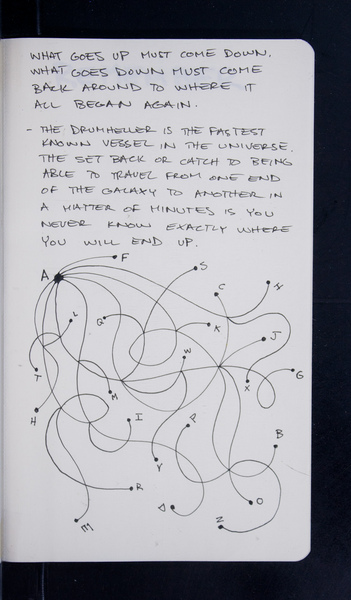 WHAT GOES UP MUST COME DOWN.
WHAT GOES DOWN MUST COME
BACK AROUND TO WHERE IT
ALL BEGAN AGAIN.
- THE DRUMHELLER IS THE FASTEST
KNOWN VESSEL IN THE UNIVERSE.
THE SET BACK OR CATCH TO BEING
ABLE TO TRAVEL FROM ONE END
OF THE GALAXY TO ANOTHER IN
A MATTER OF MINUTES IS YOU
NEVER KNOW EXACTLY WHERE
YOU WILL END UP.
A F
S
C H
L Q K J
W
T M X G
H I P
B
Y
R O
E D Z